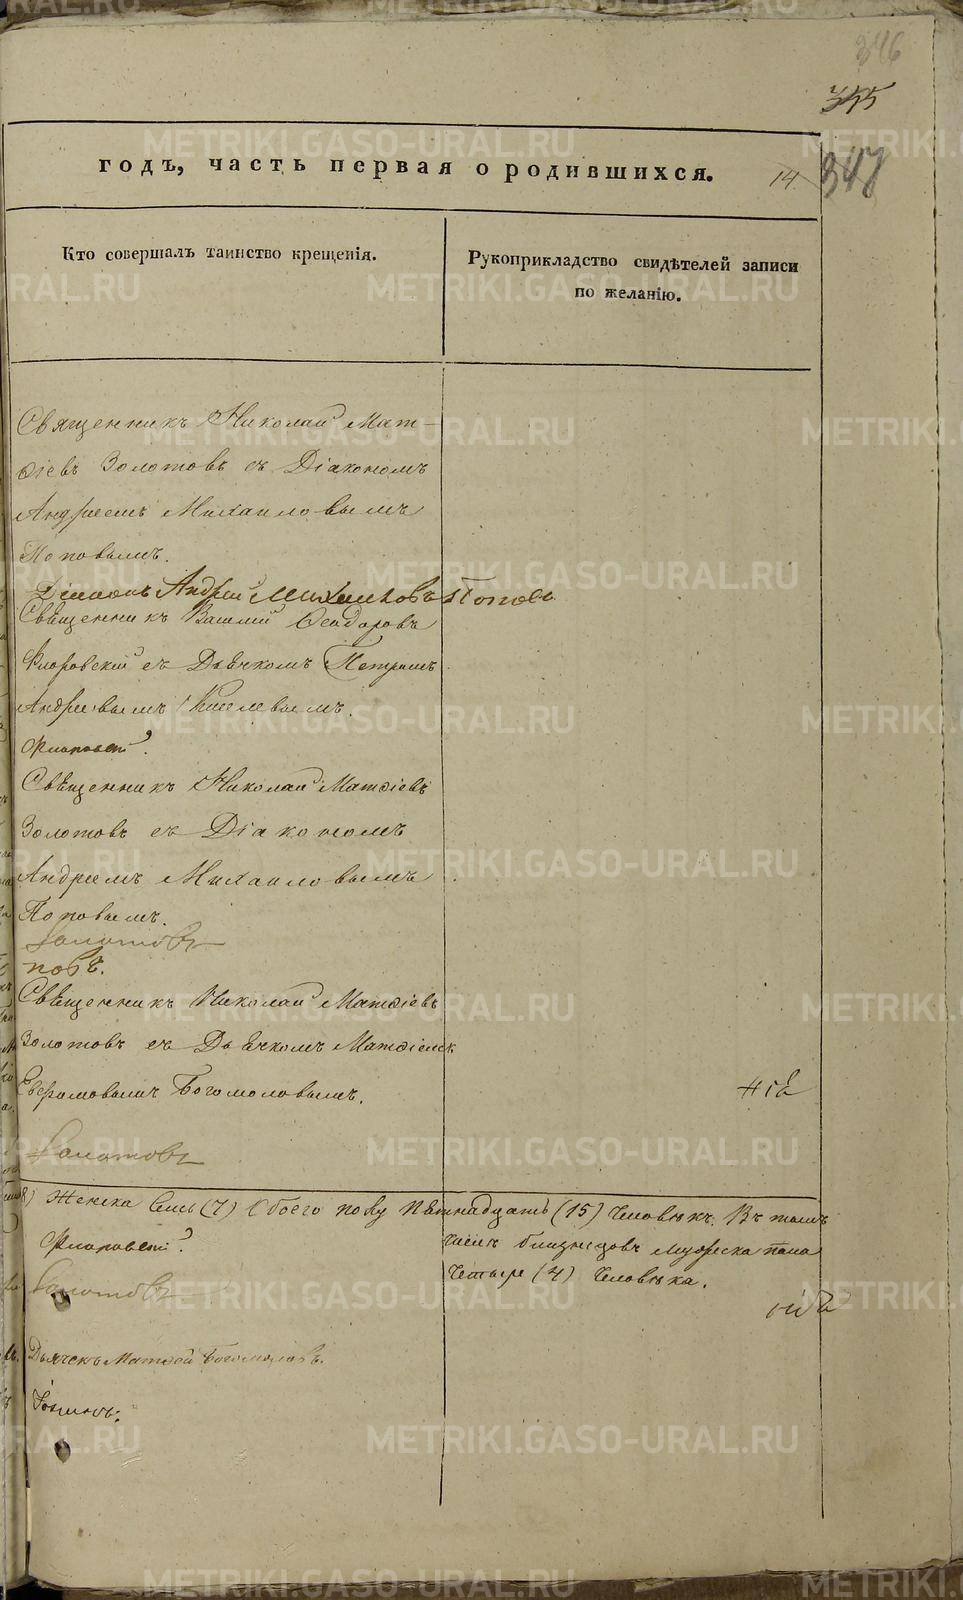 346
355
347
14
годъ, часть первая о родившихся.
Кто совершалъ таинство крещенія.
Рукоприкладство свидѣтелей записи
по желанію.
Священникъ Николай Мат-
ѳіевъ Золотовъ съ Діакономъ
Андреемъ Михаиловымъ
Поповымъ.
Діаконъ Андрей Михаиловъ Поповъ
Свѣщенникъ Василій Ѳеодоровъ
Флоровскій съ Дьячкомъ Петромъ
Андреевымъ Киселевымъ.
Свѣщенникъ Николай Матѳіевъ
Золотовъ съ Діакономъ
Андреемъ Михаиловымъ
Поповымъ.
Золотовъ
повъ.
Свѣщенникъ Николай Матѳіевъ
Золотовъ съ Дьячкомъ Матѳіемъ
Ефремовымъ Богомоловымъ.
Золотовъ
8) Женска семь (7) Обоего полу пѣтнадцать (15) Человѣкъ. Въ томъ
числѣ близнецовъ мужеска пола
Четыре (4) Человѣка.
Золотовъ
Дьячекъ Матѳей Богомоловъ.
METRIKI.GASO-URAL.RU